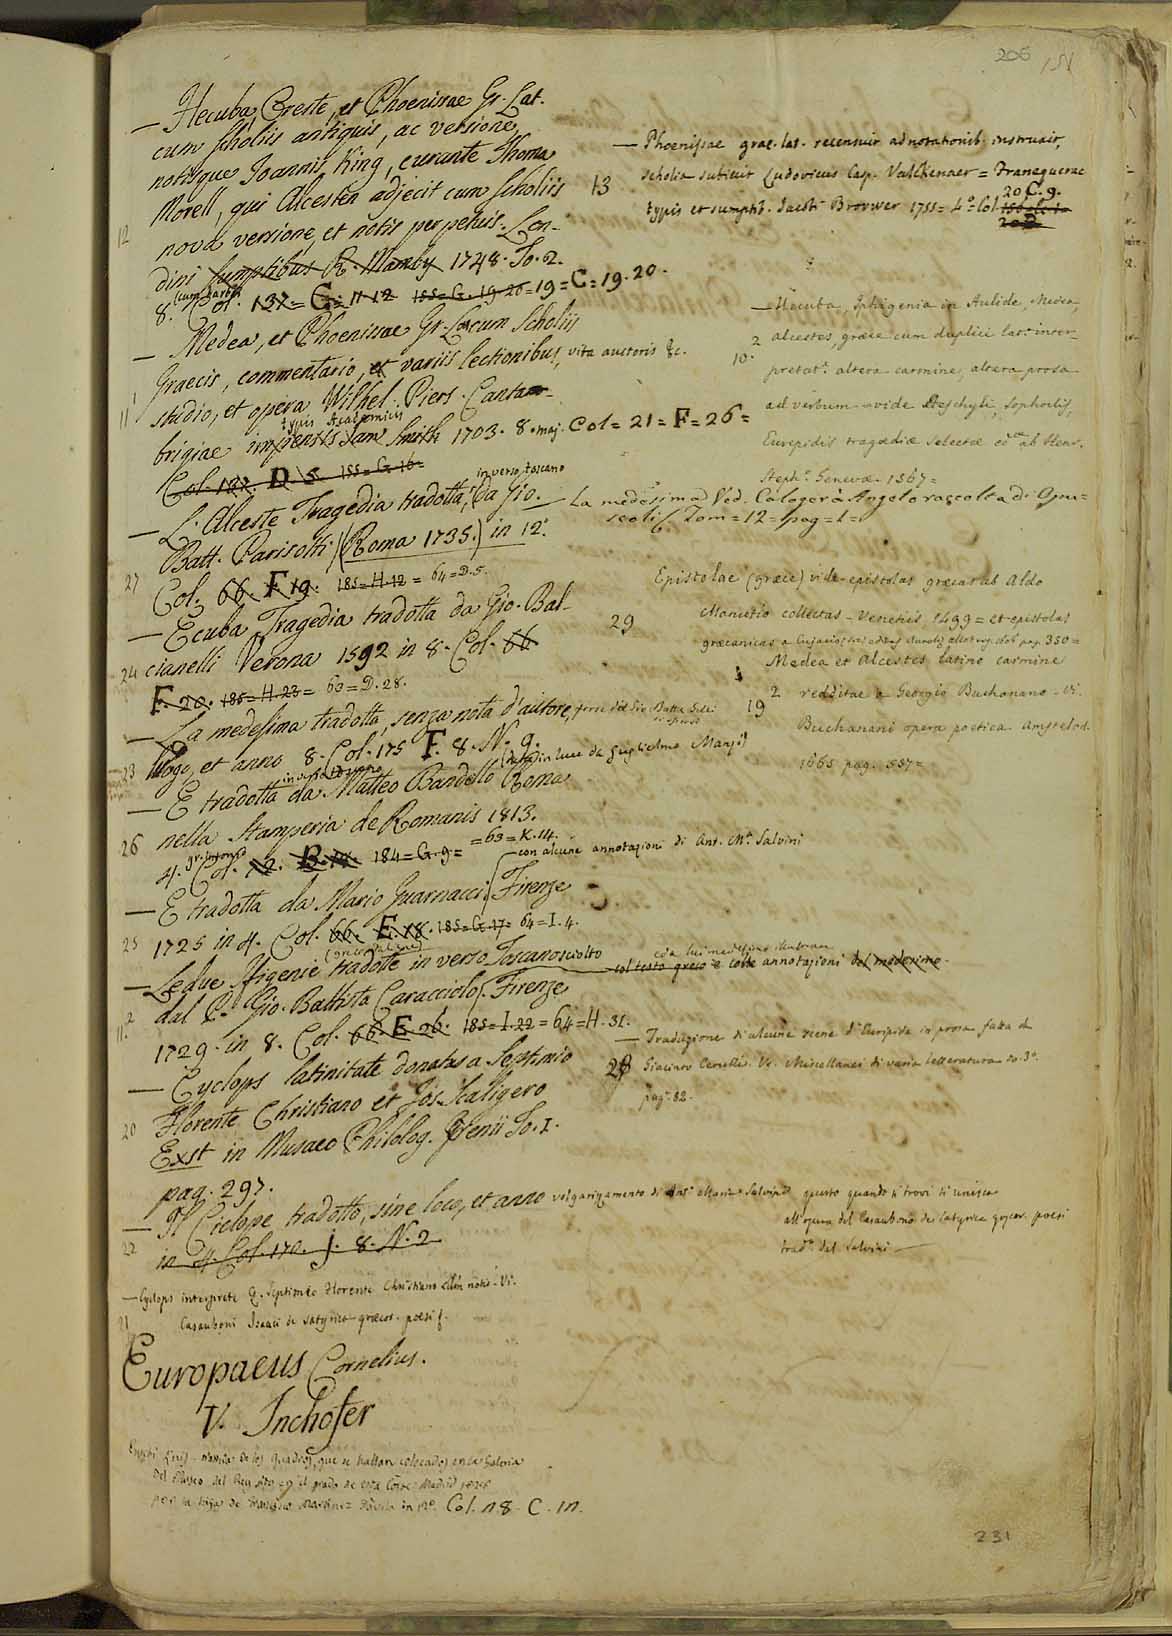 206
151
— Hecuba, Oreste, et Phoenissae Gr. Lat.
cum scholiis antiquis, ac versione,
notisque Joannis King, curante Thoma
Morell, qui Alcesten adjecit cum scholiis
12 nova versione, et notis perpetuis. Lon-
dini sumptibus R. Manby 1748. To. 2.
8. Col. 137 = G = 11 12 155 = G. 19 20 = 19 = C = 19. 20.
— Medea, et Phoenissae Gr. Lat. cum Scholiis
Graecis, commentario, et variis lectionibus, vita auctoris &c.
11 studio, et opera Wilhel. Piers. Canta-
typis Academicis
brigiae impensis Jam Smith 1703. 8. maj. Col = 21 = F = 26 =
Col. 132. D. 5. 155 = G. 16 =
in verso toscano
— L'Alceste Tragedia tradotta, da Gio.
Batt. Parisotti (Roma 1735.) in 12°.
27 Col. 66. F 19. 185 = H. 12 = 64 = D. 5.
— Ecuba Tragedia tradotta da Gio. Bal-
24 cianelli Verona 1592 in 8. Col. 66
F. 20. 185 = H. 23 = 63 = D. 28.
— La medesima tradotta, senza nota d'autore,
23 luogo, et anno 8. Col. 175 F. 8. N. 9.
in verso toscano
— E tradotta da Matteo Bandello (Roma
data in luce da Guglielmo Manzi)
26 nella Stamperia de Romanis 1813.
4. Col. 184 = G. 9 = = 63 = K. 14.
con alcune annotazioni di Ant. M.ª Salvini
— E tradotta da Mario Guarnacci Firenze
25 1725 in 4. Col. 66. E. 18. 185 = G. 17 = 64 = I. 4.
— Le due Ifigenie tradotte in verso Toscano sciolto
col testo greco e colle annotazioni del medesimo
dal P. Gio. Battista Caracciolo. Firenze
1729. in 8. Col. 66. E. 26. 185 = I. 22 = 64 = H. 31.
— Cyclops latinitate donatus a Septimio
Florente Christiano et Jos. Scaligero
20 Exst in Musaeo Philolog. Grenii To. I.
pag. 297.
— Il Ciclope tradotto, sine loco, et anno volgarizamento di Ant. Maria Salvini
22 in 4. Col. 170. J. 8. N. 2
questo quando si trovi si unisca
all'opera del Casaubono de Satyrica græcor. poesi
trad.ª dal Salvini
— Cyclops interprete Q. Septimio Florente Christiano cum notis. V.
21 Casauboni Isaaci de satyrica græcor. poesi f.
Europaeus Cornelius.
V. Inchofer
Noticia de los Quadros, que se hallan colocados en la Galeria
del Museo del Rey sito en el prado de esta Corte. Madrid
por la hija de Francisco Martinez Davila in 12°. Col. 18. C. 10.
— Phoenissae grae. lat. recensuit adnotationib. instruxit,
13 scholia subiecit Ludovicus Casp. Valckenaer = Franequerae
typis et sumptib. Jacobi Brouwer 1755 = 4.° Col.
20 C. 9.
— Hecuba, Iphigenia in Aulide, Medea,
10. 2 alcestes, græce cum duplici lat. inter-
pretat.e altera carmine, altera prosa
ad verbum - vide Aeschyli, Sophoclis,
Euripidis tragœdiæ selectæ ab Henr.
Steph.° Genevæ. 1567 =
La medesima Ved. Calogerà Angelo raccolta di Opu=
scoli Tom = 12 = pag = 1 =
Epistolae (græce) vide epistolas græcas ab Aldo
29 Manutio collectas - Venetiis 1499 = et epistolas
Medea et Alcestes latino carmine
19 2 redditae a Georgio Buchanano - Vi.
Buchanani opera poetica. Amstelod.
1665 pag. 557 =
— Traduzione d'alcune scene d'Euripide in prosa fatta da
28 Giacinto Cerutti. V. Miscellanei di varia letteratura to. 3°.
pag. 82.
231